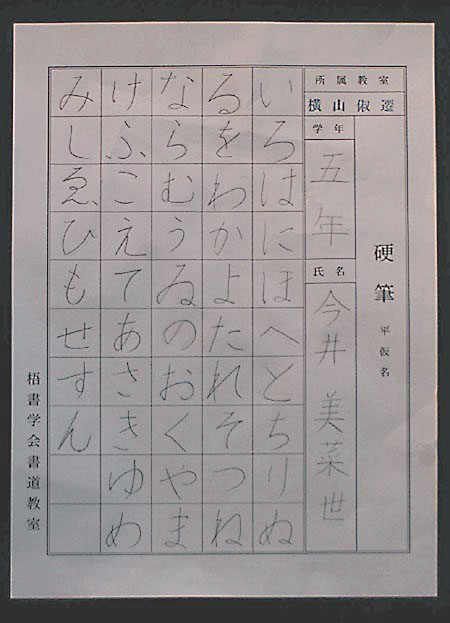 硬筆 平仮名
所属教室
横山俶遷
学年
五年
氏名
今井 美菜世
いろはにほへとちりぬ
るをわかよたれそつね
ならむうゐのおくやま
けふこえてあさきゆめ
みしゑひもせすん
梧書学会書道教室